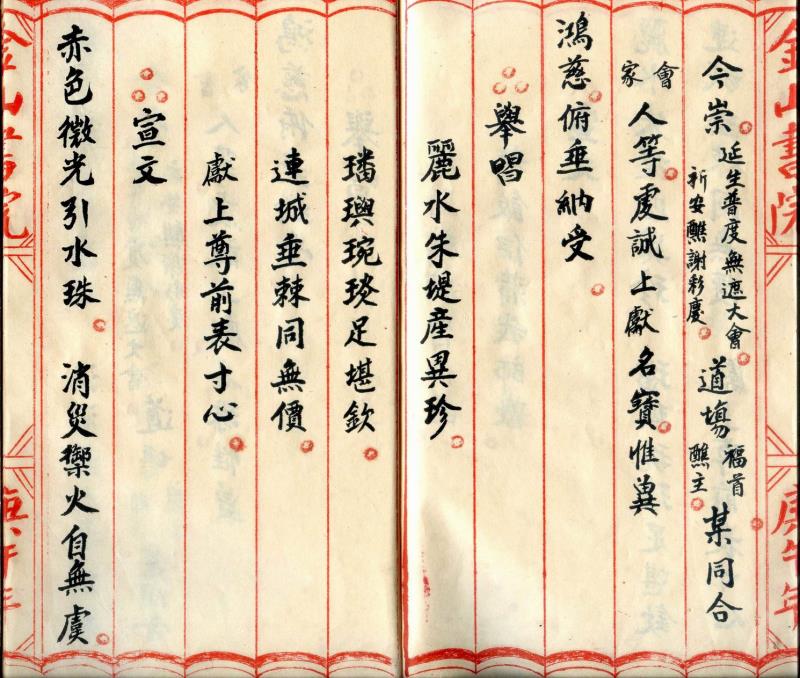 金山書院
庚午年
今崇 延生普度無遮大會 祈安醮謝彩慶 道場 福首 醮主 某同合
會家 人等虔誠上獻名寶惟冀
鴻慈俯垂納受
舉唱
麗水朱堤產異珍
璠璵琬琰足堪欽
連城垂棘同無價
獻上尊前表寸心
宣文
赤色微光引水珠 消災禦火自無虞
金山書院
庚午年